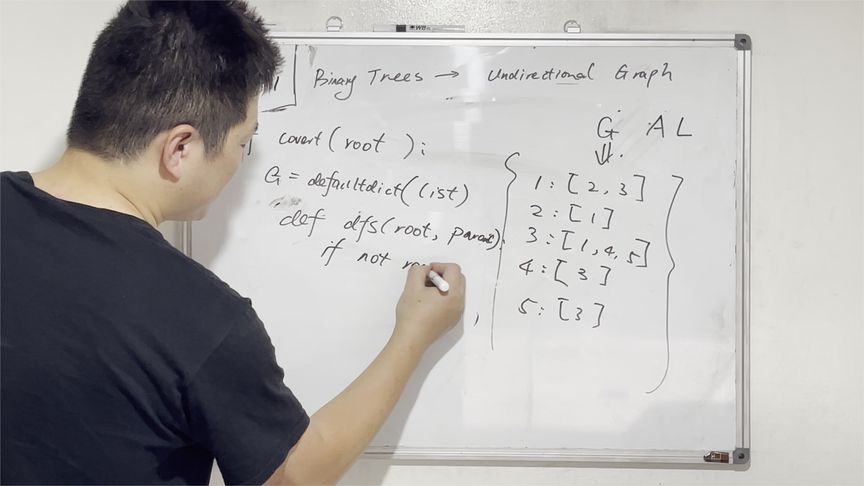 Binary Trees → Undirectional Graph
G AL
covert(root ):
G = defaultdict(list)
def dfs(root, parent):
if not
{ 1: [2, 3]
2: [1]
3: [1, 4, 5]
4: [3]
5: [3] }